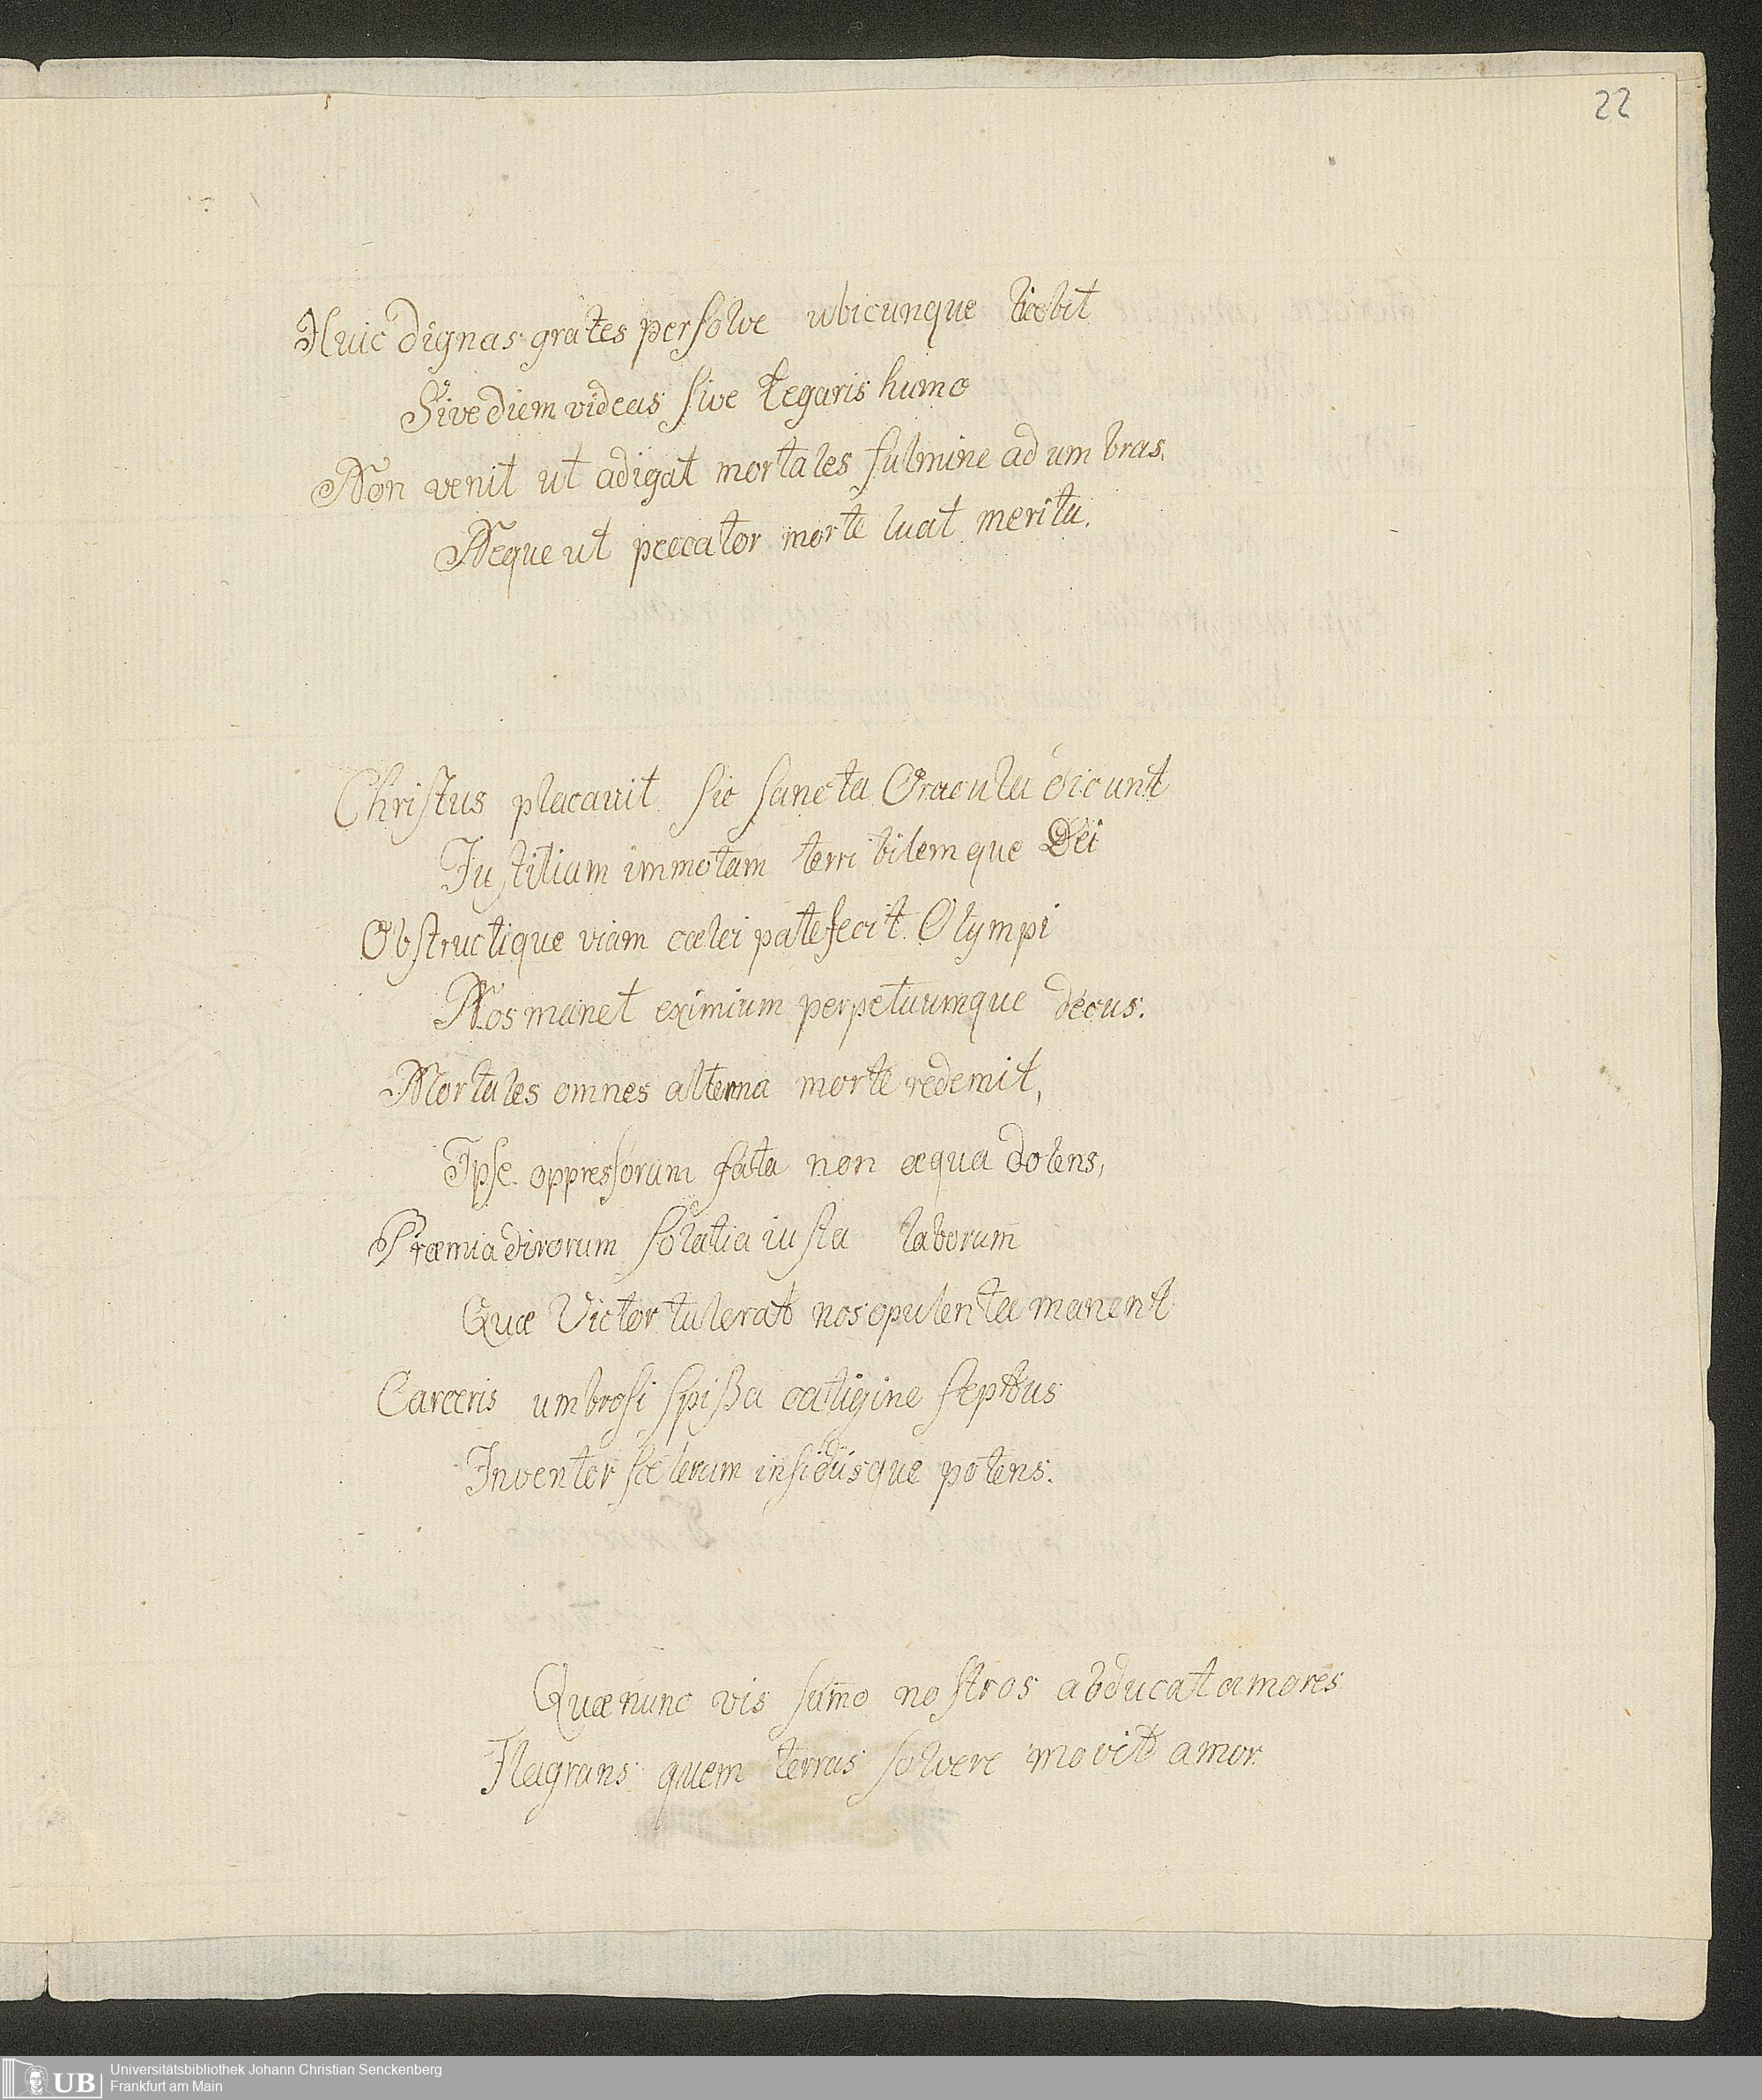 22
Huic dignas grates persolve ubicunque licebit
Sive diem videas sive tegaris humo
Non venit ut adigat mortales fulmine ad umbras.
Neque ut peccator morte luat merita.
Christus placavit sic sancta Oracula dicunt
Justitiam immotam terribilemque Dei
Obstructique viam cœlei patefecit Olympi
Nos manet eximium perpetuumque decus.
Mortales omnes alterna morte redemit,
Ipse oppressorum fata non æqua dolens,
Præmia divorum solatia iusta laborum
Quæ Victor tulerat nos opulenta manent
Carceris umbrosi spißa caligine septus
Inventor scelerum insidiisque potens.
Quæ nunc vis sum̄o nostros abducat amores
Flagrans quem terras solvere movit amor.
UB
Universitätsbibliothek Johann Christian Senckenberg
Frankfurt am Main